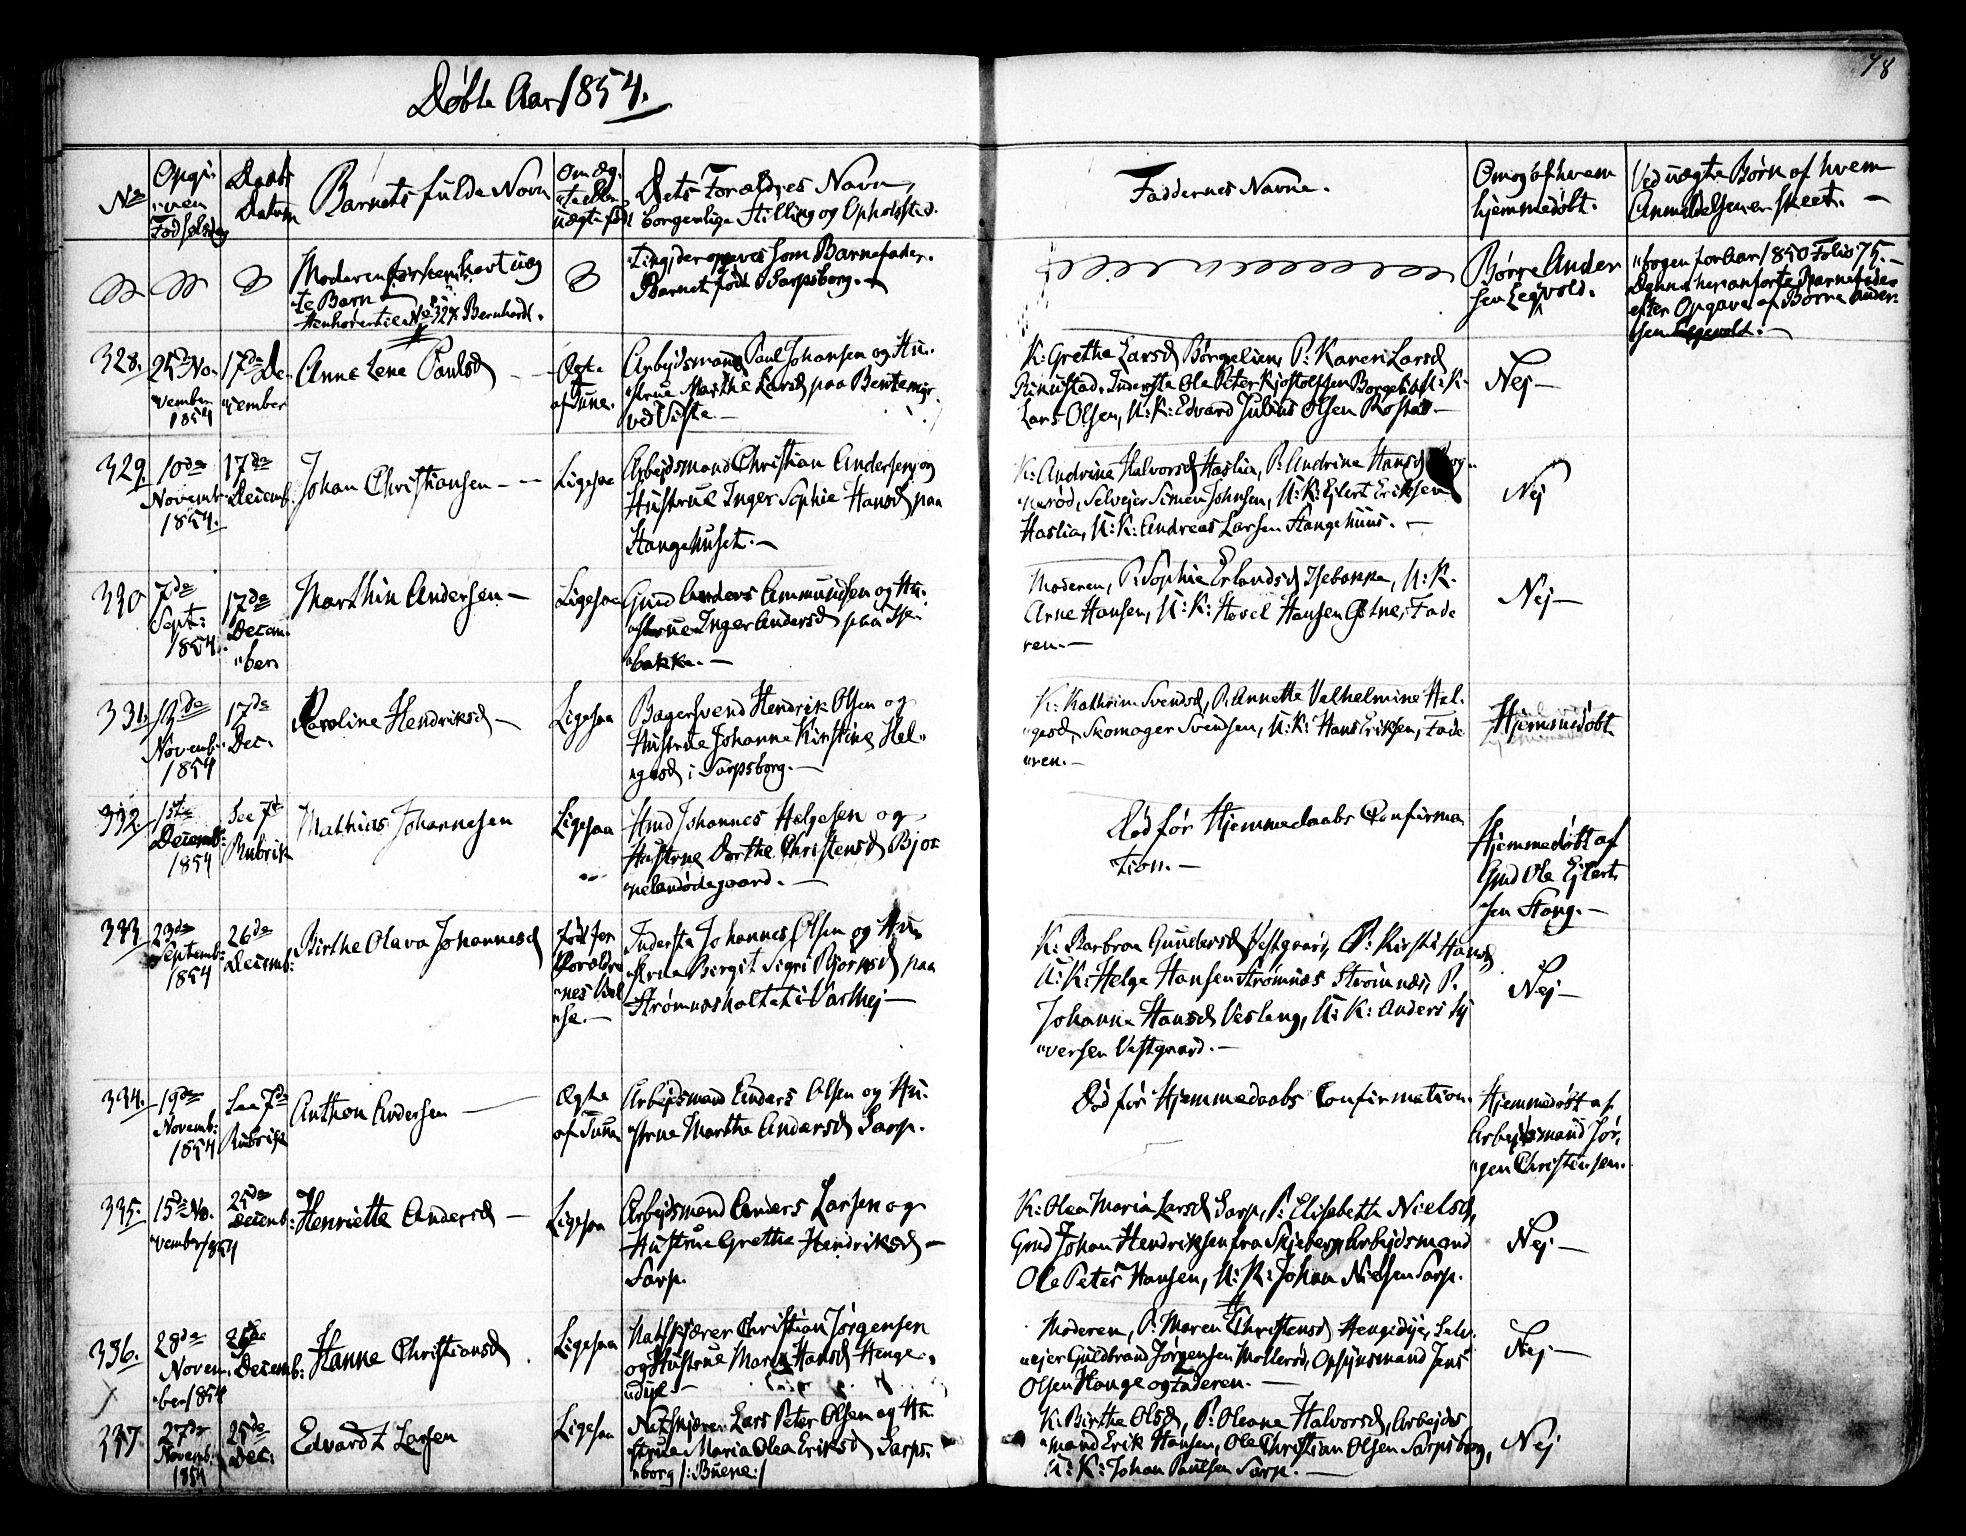 Døbte Aar 1854.
78
No
Opgi-
ven
Fødselsdag
Daabs
Datum
Barnets fulde Navn
Om æg-
te eller
uægte født
Dets Forældres Navn,
borgerlige Stilling og Opholdssted.
Faddernes Navne.
Om og af hvem
hjemmedøbt.
Ved uægte Børn af hvem
Anmeldelsen er skeet. —
Moderen forhen havt uæg
te Barn
Henhører til No 327. Bernhard.
som Barnefader.
Barnet født Sarpsborg. —
Børre Ander
sen Legvold.
"bogen for Aar 1850 Folio 75. —
Denne her anførte Barnefader
efter Opgave af Børre Ander-
sen
328.
25de No-
vember
1854
17de De-
"cember
Anne Lene Paulsd
Ægte
af Tune.
Arbejdsmand Paul Johansen og Hu-
strue Marthe Larsd paa
ved Viste. —
K: Grethe Larsd Børgelien, P: Karen Larsd
Inderste Ole Peter Borgelien, U: K:
Lars Olsen, U: K: Edvard Julius Olsen Rostad. —
Nej —
329.
10de
Novemb:
1854.
17de
Decemb.
Johan Christiansen - -
Ligesaa
Arbejdsmand Christian Andersen og
Hustrue Inger Sophie Hansd paa
Hangehuset. —
K: Andrine Halvorsd Haslia, P: Andrine Hansd
Selvejer Simen Johnsen, U: K: Ejlert Eriksen
Haslia, U: K: Andreas Larsen Hangehuus. —
Nej
330
7de
Sept:
1854.
17de
Decem-
"ber
Marthin Andersen —
Ligesaa
Gmd Anders Ammundsen og Hu-
"strue Inger Andersd paa Ise-
"bakke. —
Moderen, P: Sophie Erlandsd Isebakke, U: K.
Arne Hansen, U: K: Hovel Hansen Fade
ren. —
Nej —
331.
12de
Novemb.
1854
17de
Dec.
Karoline Hendriksd —
Ligesaa
Bagersvend Hendrik Olsen og
Hustrue Johanne Kirstine Hel-
"gesd i Sarpsborg. —
K: Kathrine Svendsd, P: Annette Velhelmine Hel-
"gesd, Skomager Svendsen, U: K: Hans Eriksen, Fade
"ren. —
Hjemmedøbt
332.
1ste
Decemb:
1854
See 7de
Rubrik
Mathias Johannesen
Ligesaa
Hmd Johannes Helgesen og
Hustrue Dorthe Christensd Bjør
"nelandødegaard. —
Død før Hjemmedaabs Confirma
tion. —
Hjemmedøbt af
Gmd Ole Ejlert
sen Hang. —
333.
23de
Septemb:
1854
26de
Decemb:
Birthe Olava Johannesd
Født før
Forældre
"nes
"se. —
Inderste Johannes Olsen og Hu-
"strue Bergit Sigri Bjørnsd paa
Strømnesholtet i Vartej —
K: Barbroe Gundersd Vestgaard, P: Kirsti Hansd
U: K: Helge Hansen Strømnæs Strømnæs, P.
Johanne Hansd Vesteng, U: K: Anders Sy
"versen Vestgaard. —
Nej —
334.
19de
Novemb:
1854
See 7de
Rubrik
Anthon Andersen —
Ægte
af Tune
Arbejdsmand Anders Olsen og Hu-
"strue Marthe Andersd Sarp.
Død før Hjemmedaabs Confirmation.
Hjemmedøbt af
Arbejdsmand Jør-
"gen Christensen.
335.
15de No-
"vember 1854
25de
Decemb:
Henriette Andersd —
Ligesaa
Arbejdsmand Anders Larsen og
Hustrue Grethe Hendriksd —
Sarp.
K: Olea Maria Larsd Sarp, P: Elisabeth Nielsd,
Gmd Johan Hendriksen fra Skjeberg, Arbejdsmand
Ole Peter Hansen, U: K: Johan Nielsen Sarp.
Nej. —
336.
28de
Novem-
"ber 1854
26de
Decemb:
Hanne Christiansd
Ligesaa
Christian Jørgensen
og Hustrue Maren Hansd Henge-
"dyje. —
Moderen, P: Maren Christensd Hengedyje, Selv-
"ejer Guldbrand Jørgensen Møllerød, Opsynsmand Jens
Olsen Hauge og Faderen. —
Nej. —
337
27de
Novemb:
1854
25de
Dec:
Edvard Larsen
Ligesaa
Lars Peter Olsen og Hu-
strue Maria Olea Eriksd Sarps-
"borg /: Buene :/
K: Birthe Olsd, P: Oleane Halvorsd, Arbejds
"mand Erik Hansen, Ole Christian Olsen Sarpsborg,
U: K: Johan Paulsen Sarp. —
Nej